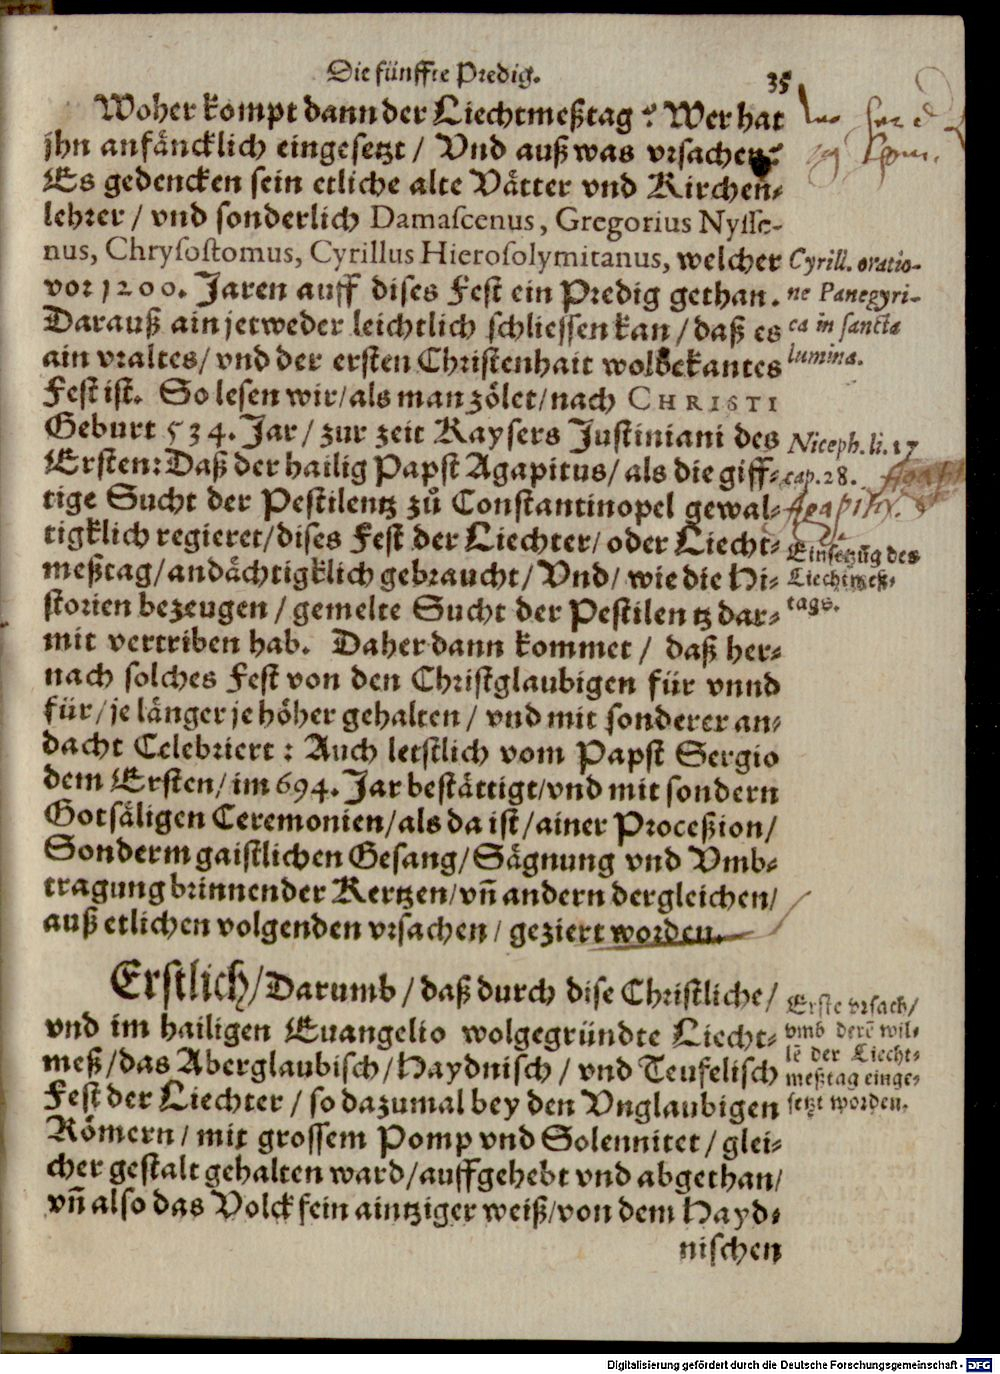 Die fünffte Predig.
35
Woher kompt dann der Liechtmeßtag? Wer hat
jhn anfäncklich eingesetzt / Vnd auß was vrsachen?
Es gedencken sein etliche alte Vätter vnd Kirchen-
lehrer / vnd sonderlich Damascenus, Gregorius Nysse-
nus, Chrysostomus, Cyrillus Hierosolymitanus, welcher
vor 1200. Jaren auff dises Fest ein Predig gethan.
Darauß ain jetweder leichtlich schliessen kan / daß es
ain vraltes / vnd der ersten Christenhait wolbekantes
Fest ist. So lesen wir / als man zölet / nach CHRISTI
Geburt 534. Jar / zur zeit Kaysers Justiniani des
Ersten: Daß der hailig Papst Agapitus / als die giff-
tige Sucht der Pestilentz zů Constantinopel gewal-
tigklich regieret / dises Fest der Liechter / oder Liecht-
meßtag / andächtigklich gebraucht / Vnd / wie die Hi-
storien bezeugen / gemelte Sucht der Pestilentz dar-
mit vertriben hab. Daher dann kommet / daß her-
nach solches Fest von den Christglaubigen für vnnd
für / je länger je höher gehalten / vnd mit sonderer an-
dacht Celebriert: Auch letstlich vom Papst Sergio
dem Ersten / im 694. Jar bestättigt / vnd mit sondern
Gotsäligen Ceremonien / als da ist / ainer Proceßion /
Sonderm gaistlichen Gesang / Sägnung vnd Vmb-
tragung brinnender Kertzen / vñ andern dergleichen /
auß etlichen volgenden vrsachen / geziert worden.
Erstlich / Darumb / daß durch dise Christliche /
vnd im hailigen Euangelio wolgegründte Liecht-
meß / das Aberglaubisch / Haydnisch / vnd Teufelisch
Fest der Liechter / so dazumal bey den Vnglaubigen
Römern / mit grossem Pomp vnd Solennitet / glei-
cher gestalt gehalten ward / auffgehebt vnd abgethan /
vñ also das Volck fein aintziger weiß / von dem Hayd-
nischen
Cyrill. oratio-
ne Panegyri-
ca in sancta
lumina.
Niceph. li. 17
cap. 28.
Agapitus.
Einsetzũg des
Liechtmeß-
tags.
Erste vrsach /
vmb derẽ wil-
lẽ der Liecht-
meßtag einge-
setzt worden.
Digitalisierung gefördert durch die Deutsche Forschungsgemeinschaft - DFG